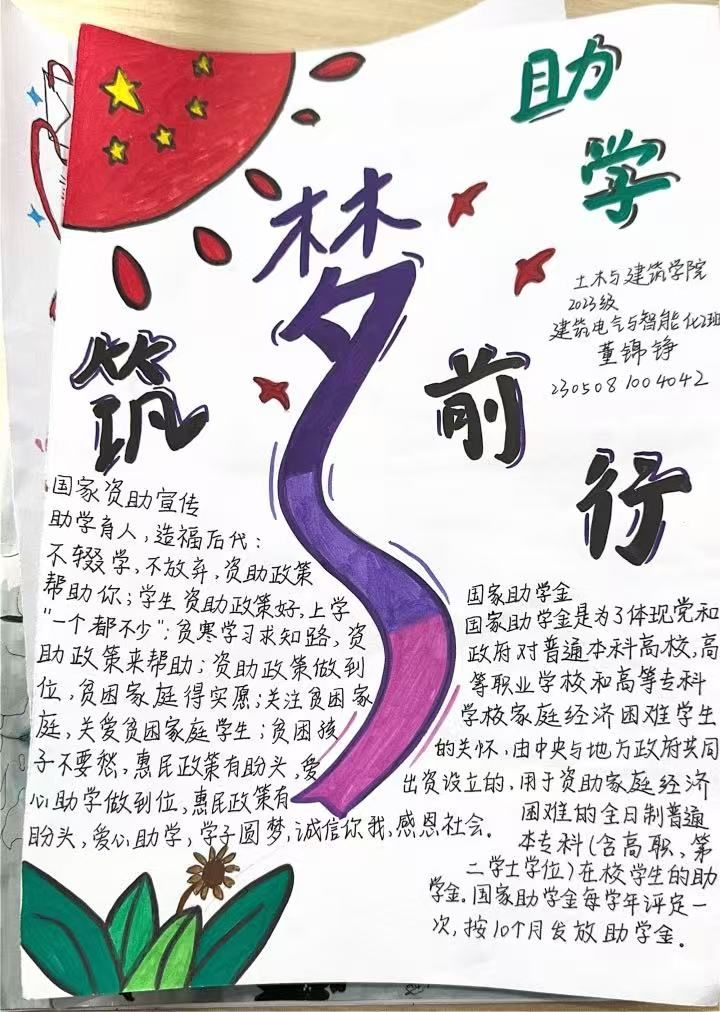 助学
筑梦前行
土木与建筑学院
2023级
建筑电气与智能化2班
董锦铮
2305081004042
国家资助宣传
助学育人，造福后代：
不辍学，不放弃，资助政策
帮助你；学生资助政策好，上学
"一个都不少"；贫寒学习求知路，资
助政策来帮助；资助政策做到
位，贫困家庭得实愿；关注贫困家
庭，关爱贫困家庭学生；贫困孩
子不要愁，惠民政策有盼头，爱
心助学做到位，惠民政策有
盼头，爱心助学，学子圆梦，诚信你我，感恩社会。
国家助学金
国家助学金是为了体现党和
政府对普通本科高校，高
等职业学校和高等专科
学校家庭经济困难学生
的关怀，由中央与地方政府共同
出资设立的，用于资助家庭经济
困难的全日制普通
本专科（含高职、第
二学士学位）在校学生的助
学金。国家助学金每学年评定一
次，按10个月发放助学金。